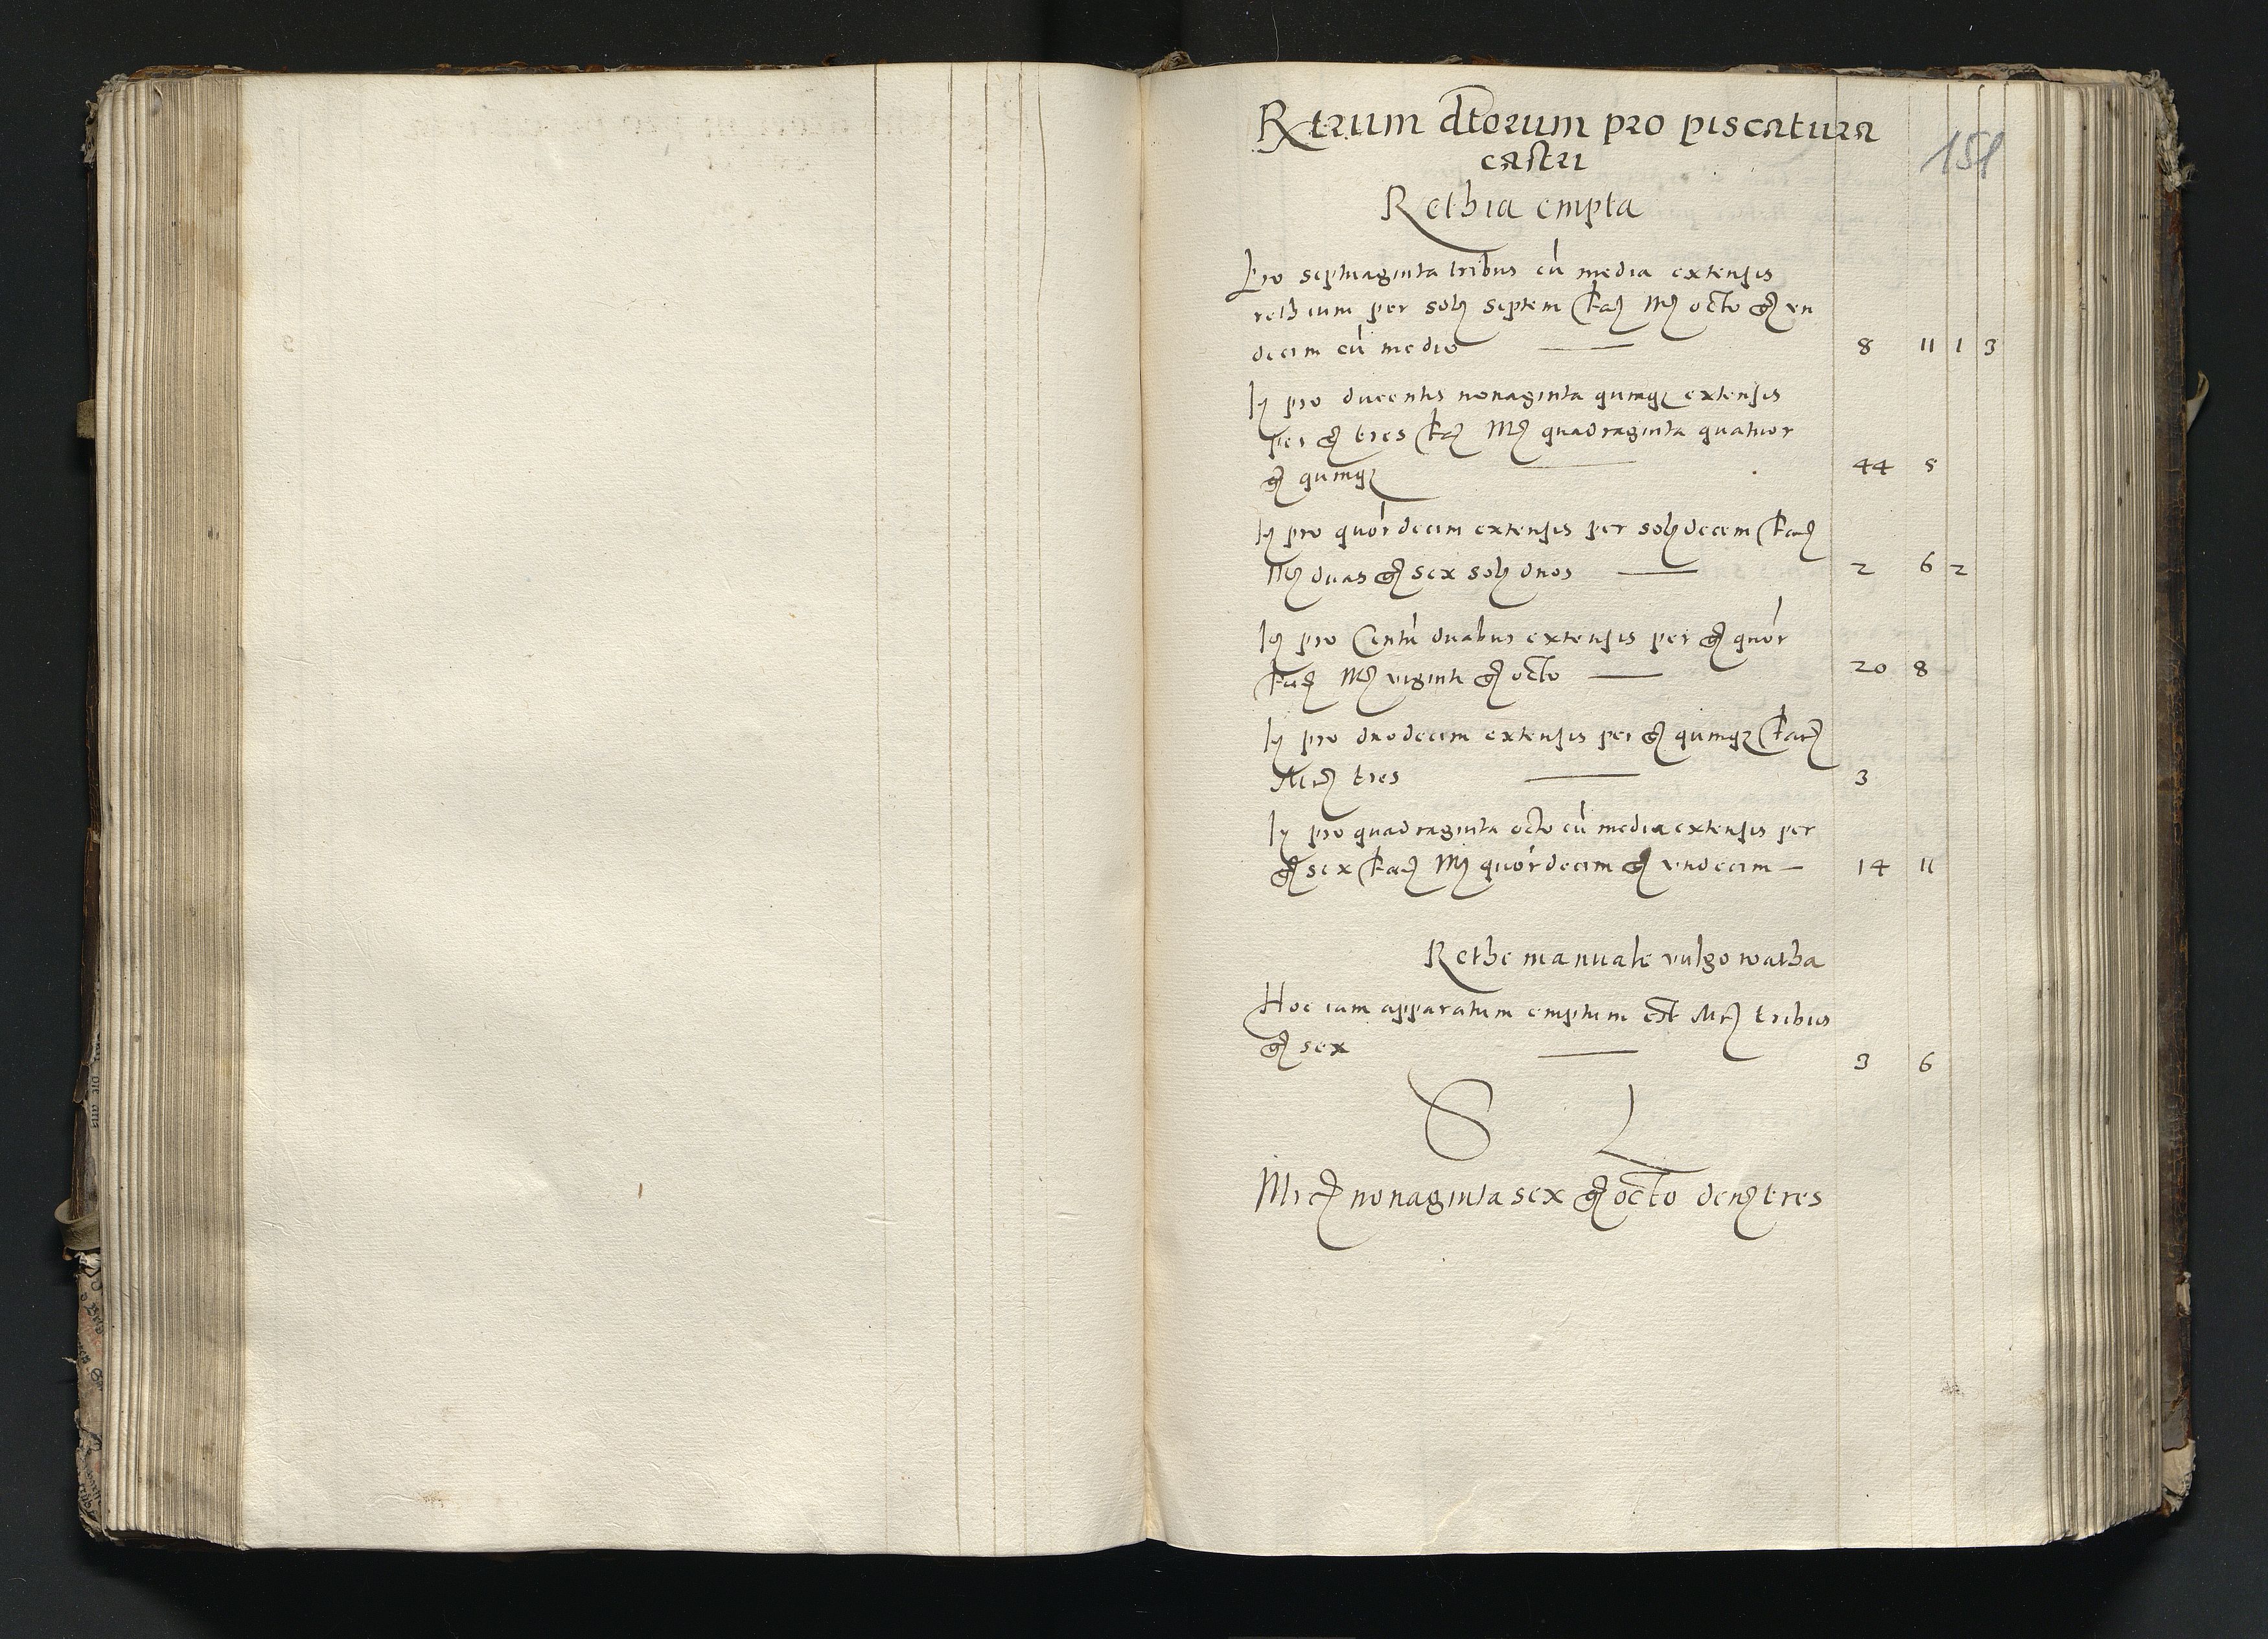 Retium dtorum pro piscatura
castri
151
Rethia empta
Pro septuaginta tribus cu media extensis
rethium per sol septem fac Mr octo gr vn
decim cu medio — 8 11 1 3
It pro ducentis nonaginta quinq extensis
per gr tres fac Mr quadraginta quatuor
gr quinq — 44 5
It pro quordecim extensis per sol decem fac
Mr duas gr sex sol duos — 2 6 2
It pro Centu duabus extensis per gr quor
fac Mr viginti gr octo — 20 8
It pro duodecim extensis per gr quinq fac
Mr tres — 3
It pro quadraginta octo cu media extensis per
gr sex fac Mr quordecim gr vndecim — 14 11
Rethe manuale vulgo watha
Hoc iam apparatum emptum est Mr tribus
gr sex — 3 6
S L
Mrc nonaginta sex gr octo den tres